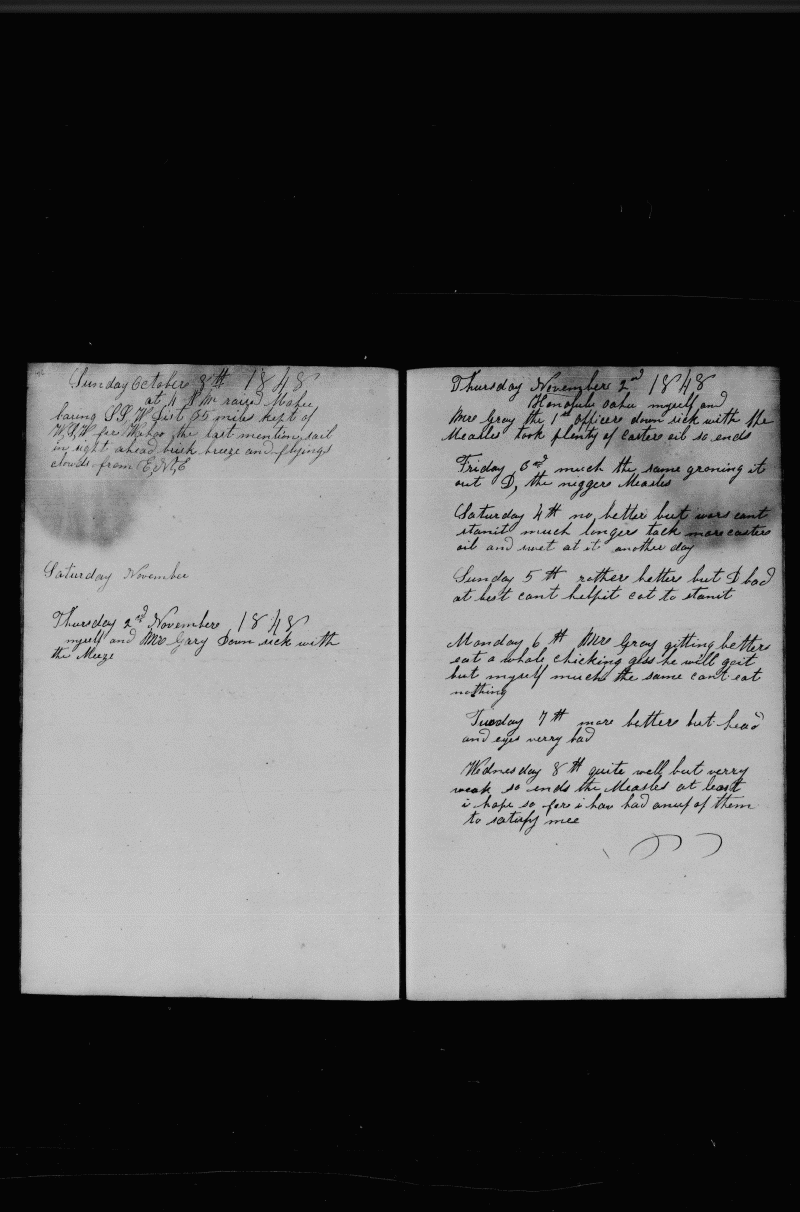 Sunday October 8th 1848
at 4 P M raized Mahee
baring S,S,W dist 65 miles kept of
W,S,W fore Wahoo the last mention sail
in sight ahead brisk breeze and flyings
clouds from E,N,E
Saturday November
Thursday 2nd Novembere 1848
myself and Mre Gray Down sick with
the Meeze
Thursday Novembere 2nd 1848
Honolulu oahu myself and
Mre Gray the 1st officere down sick with the
Measles took plenty of casters oil so ends
Friday 3rd much the same groning it
out D, the niggers Measles
Saturday 4th no better but wors cant
stanit much longere tack more casters
oil and swet at it another day
Sunday 5th rathere bettere but D bad
at best cant helpit cot to stanit
Monday 6th Mre Gray gitting bettere
eat a whole chicking gess he will goit
but myself much the same cant eat
nothing
Tuesday 7th more bettere but head
and eyes verry bad
Wednesday 8th quite well but verry
weak so ends the Measles at least
i hope so fore i hav had anuf of them
to satisfy mee